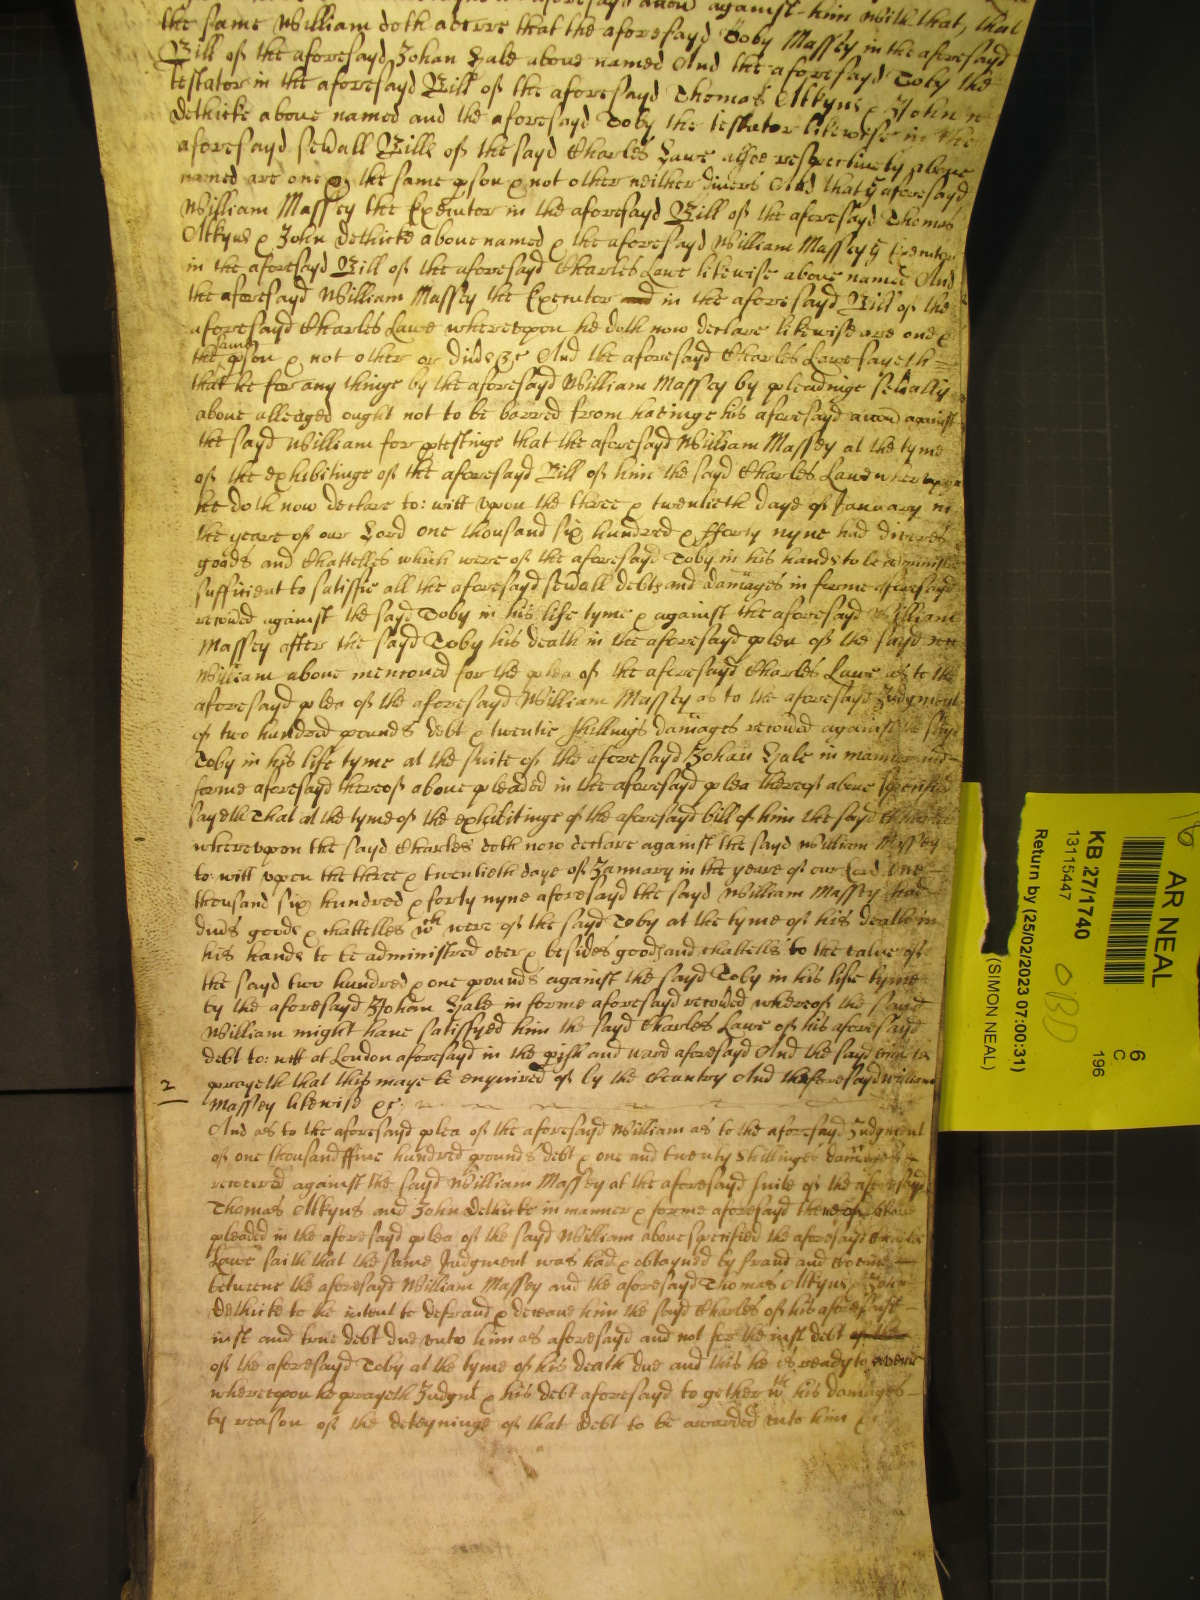 aforesayd accon against him With that, that
the same William doth averre that the aforesayd Toby Massey in the aforesayd
Bill of the aforesayd Johan Hale above named And the aforesayd Toby the
Testator in the aforesayd Bill of the aforesayd Thomas Atkyns & John
Dethicke above named and the aforesayd Toby the testator likewise in the
aforesayd sevall Bille of the sayd Charles Lawe alsoe respectively above
named are one & the same pson & not other neither divers And that ye aforesayd
William Massey the Executor in the aforesayd Bill of the aforesayd Thomas
Atkyns & John Dethicke above named & the aforesayd William Massey ye Executor
in the aforesayd Bill of the aforesayd Charles Lawe likewise above named And
the aforesayd William Massey the Executor and in the aforesayd Bill of the
aforesayd Charles Lawe whereupon he doth now declare likewise are one &
the same pson & not other or divse &c And the aforesayd Charles Lawe sayeth
that he for any thinge by the aforesayd William Massey by pleadinge sevally
above alleaged ought not to be barred from haveinge his aforesayd accon against
the sayd William for ptestinge that the aforesayd William Massey at the tyme
of the exhibitinge of the aforesayd Bill of him the sayd Charles Lawe whereupon
he doth now declare to: witt upon the three & twentieth daye of January in
the yeare of our Lord one thousand six hundred & fforty nyne had diveres
goods and Chattelles which were of the aforesayd Toby in his hands to be administred
sufficient to satisfie all the aforesayd sevall debts and damages in forme aforesayd
recoved against the sayd Toby in his life tyme & against the aforesayd William
Massey after the sayd Toby his death in the aforesayd plea of the sayd
William above menconed for the plea of the aforesayd Charles Lawe as to the
aforesayd plea of the aforesayd William Massey as to the aforesayd Judgment
of two hundred pounds debt & twentie shillings damages recoved against the sayd
Toby in his life tyme at the suite of the aforesayd Johan Hale in manner and
forme aforesayd thereof above pleaded in the aforesayd plea thereof above specified
sayeth That at the tyme of the exhibitinge of the aforesayd bill of him the sayd Charles
whereupon the sayd Charles doth now declare against the sayd William Massey
to witt upon the three & twentieth daye of January in the yeare of our Lord one
thousand six hundred & forty nyne aforesayd the sayd William Massey had
divs goods & chattelles wch were of the sayd Toby at the tyme of his death in
his hands to be administred over & besides goods and chattells to the value of
the sayd two hundred & one pounds against the sayd Toby in his life tyme
by the aforesayd Johan Hale in forme aforesayd recoved whereof the sayd
William might have satisfyed him the sayd Charles Lawe of his aforesayd
debt to: witt at London aforesayd in the pish and ward aforesayd And the sayd
prayeth that this maye be enquired of by the Country And the aforesayd William
2 Massey likewise &c:
And as to the aforesayd plea of the aforesayd William as to the aforesayd Judgment
of one thousand ffive hundred pounds debt & one and twenty shillinges damages
recovered against the sayd William Massey at the aforesayd suite of the aforesayd
Thomas Atkyns and John Dethicke in manner & forme aforesayd thereof above
pleaded in the aforesayd plea of the sayd William above specified the aforesayd Charles
Lawe saith that the same Judgment was had & obtayned by fraud and covin
betweene the aforesayd William Massey and the aforesayd Thomas Atkyns & John
Dethicke to the intent to defraud & deceave him the sayd Charles of his aforesayd
iust and true debt due unto him as aforesayd and not for the iust debt of the
of the aforesayd Toby at the tyme of his death due and this he is ready to averr
whereupon he prayeth Judgmt & his debt aforesayd to gether wth his damages
by reason of the deteyninge of that debt to be awarded unto him &c
AR NEAL
KB 27/1740
13115447
Return by (25/02/2023 07:00:31)
(SIMON NEAL)
6
C
196
OBD